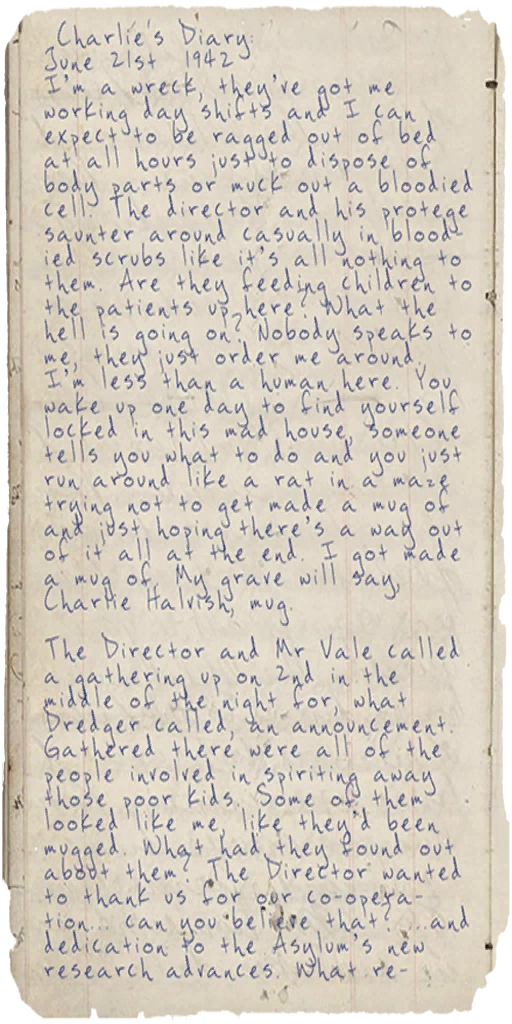 Charlie's Diary:
June 21st 1942
I'm a wreck, they've got me
working day shifts and I can
expect to be ragged out of bed
at all hours just to dispose of
body parts or muck out a bloodied
cell. The director and his protege
saunter around casually in blood-
ied scrubs like it's all nothing to
them. Are they feeding children to
the patients up here? What the
hell is going on? Nobody speaks to
me, they just order me around.
I'm less than a human here. You
wake up one day to find yourself
locked in this mad house, someone
tells you what to do and you just
run around like a rat in a maze
trying not to get made a mug of
and just hoping there's a way out
of it all at the end. I got made
a mug of. My grave will say,
Charlie Halvish, mug.

The Director and Mr Vale called
a gathering up on 2nd in the
middle of the night for, what
Dredger called, an announcement.
Gathered there were all of the
people involved in spiriting away
those poor kids. Some of them
looked like me, like they'd been
mugged. What had they found out
about them? The Director wanted
to thank us for our co-opera-
tion... can you believe that? ...and
dedication to the Asylum's new
research advances. What re-